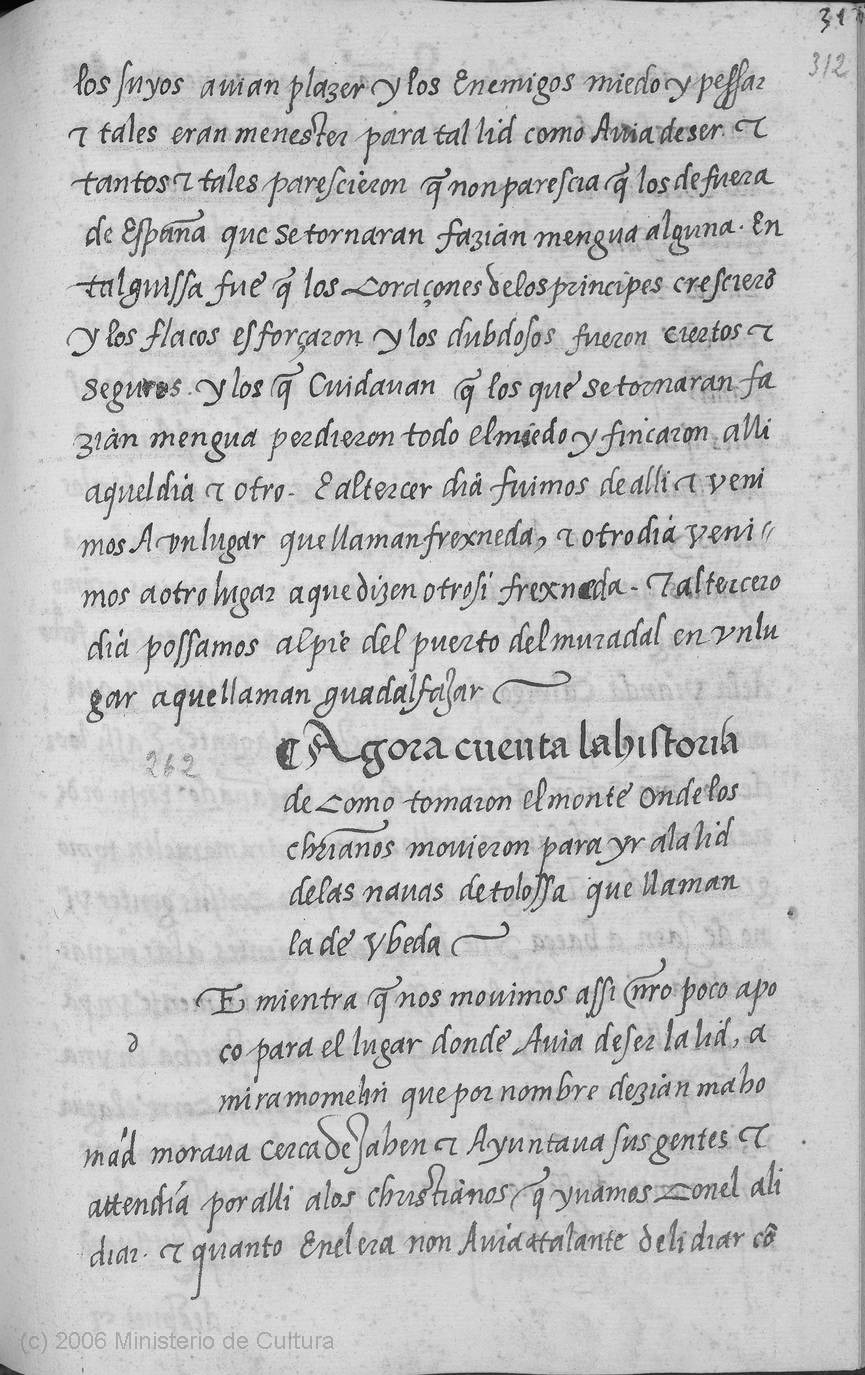 312
312
los suyos auian plazer y los Enemigos miedo y pessar
τ tales eran menester para tal lid como Auia de ser τ
tantos τ tales parescieron q̃ non parescia q̃ los de fuera
de España que se tornaran fazian mengua alguna. En
tal guissa fue q̃ los Coraçones delos principes crescierõ
y los flacos esforçaron y los dubdosos fueron ciertos τ
seguros. y los q̃ Cuidauan q̃ los que se tornaran fa
zian mengua perdieron todo el miedo y fincaron alli
aquel dia τ otro. E al tercer dia fuimos de alli τ veni
mos A vn lugar que llaman frexneda, τ otro dia veni〃
mos a otro lugar a que dizen otrosi frexneda. τ al tercero
dia possamos al pie del puerto del muradal en vn lu
gar a que llaman guadalfazar
262
¶ Agora cuenta la historia
de Como tomaron el monte onde los
chrĩanos mouieron para yr ala lid
delas nauas de tolossa que llaman
la de Vbeda
E mientra q̃ nos mouimos assi nr̃o poco a po
co para el lugar donde Auia de ser la lid, a
miramomelin que por nombre dezian maho
mad moraua Cerca de Jahen τ Ayuntaua sus gentes τ
attendia por alli a los christianos q̃ yuamos Con el a li
diar. τ quanto En el era non Auia atalante de lidiar cõ
(c) 2006 Ministerio de Cultura